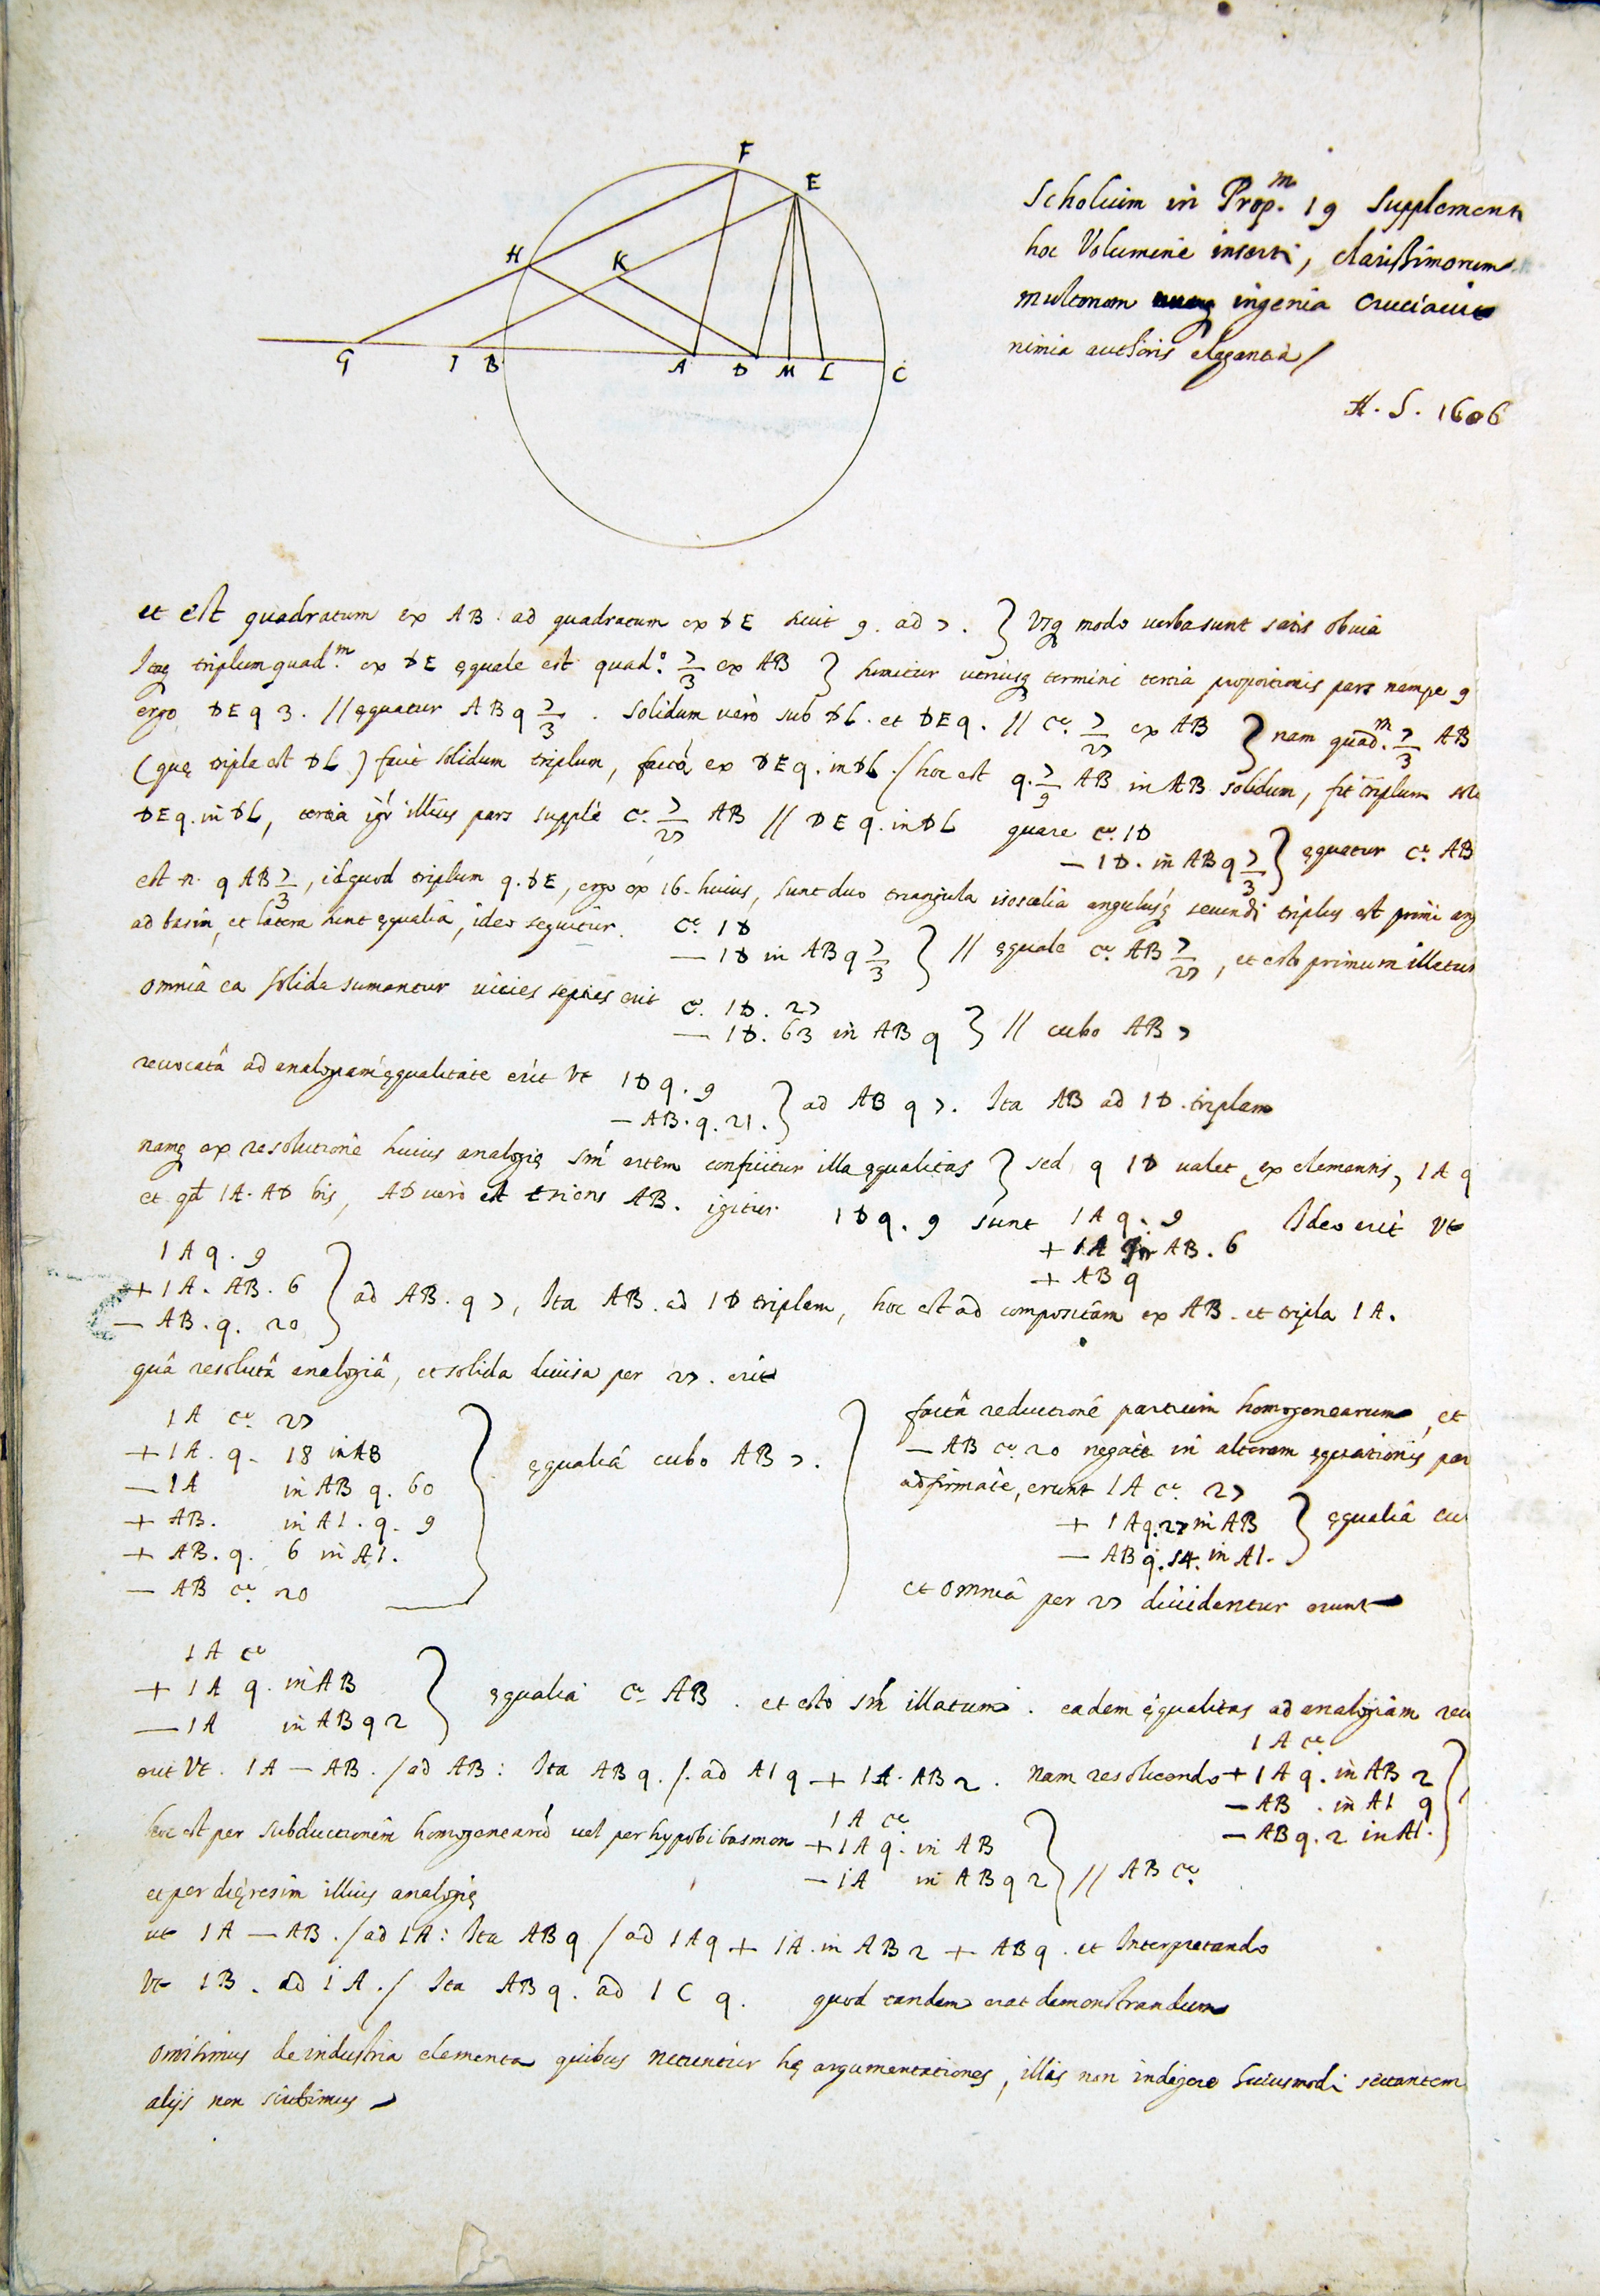 F
E
H
K
G I B A D M L C
Scholium in Prop.m 19 Supplementi
hoc Volumine inserti, clarissimorum
multorum ingenia cruciavit
nimia authoris elegantia /
A. S. 1606
et est quadratum ex AB ad quadratum ex DE sicut 9. ad 7. } Usq modo verba sunt satis obvia
Itaq triplum quad.m ex DE ęquale est quad.o 7/3 ex AB } sumitur utriusq termini tertia proportionis pars nempe 9
ergo DE q 3. // ęquatur AB q 7/3. Solidum verò sub DL. et DE q. // Cu 7/27 ex AB } nam quad.m 7/3 AB
(quę tripla est DL) facit solidum triplum, facto ex DE q. in DL. / hoc est q. 7/9 AB in AB solidum, fit triplum
DE q. in DL, tertia igr illius pars supple C. 7/27 AB // DE q. in DL quare C. ID
— ID. in AB q 7/3 } ęquatur Cu AB
est n. q AB 7/3, id quod triplum q. DE, ergo ex 16. huius, sunt duo triangula isoscelia angulusq secundi triplus est primi ang
ad basin, et latera sunt ęqualia, ideo sequitur. C. ID
— ID in AB q 7/3 } // ęquale Cu AB 7/27, et esto primum illatum
omnia ea solida sumantur vicies septies erit C. ID. 27
— ID. 63 in AB q } // cubo AB 7
revocatâ ad analogiam ęqualitate erit Vt ID q. 9
— AB. q. 21. } ad AB q 7. Ita AB ad ID. triplam
namq ex resolutione huius analogię sm artem conficitur illa ęqualitas } sed q ID valet, ex elementis, IA q
et qd IA. AD bis, AD verò est triens AB. igitur ID q. 9 sunt IA q. 9 Ideo erit Vt
+ IA in AB. 6
+ AB q
IA q. 9
+ IA. AB. 6
— AB. q. 20 } ad AB. q 7, Ita AB. ad ID triplam, hoc est ad compositam ex AB. et tripla IA.
quâ resolutâ analogiâ, et solida divisa per 27. erit
IA cu 27
+ IA. q. 18 in AB
— IA in AB q. 60
+ AB. in AI. q. 9
+ AB. q. 6 in AI.
— AB cu 20
ęqualia cubo AB 7.
factâ reductione partium homogenearum, et
— AB cu 20 negatè in alteram ęquationis par
adfirmatè, erunt IA cu 27
+ IA q. 27 in AB
— AB q. 54. in AI. } ęqualia cu
et omnia per 27 dividentur erunt
IA cu
+ IA q. in AB
— IA in AB q 2 } ęqualia Cu AB. et esto sm illatum. eadem ęqualitas ad analogiam rev
erit Vt. IA — AB. / ad AB: Ita AB q. /. ad AI q + IA. AB 2. Nam resolvendo IA cu
+ IA q. in AB 2
— AB. in AI q
— AB q. 2 in AI.
hoc est per subductionem homogenearū vel per hypobibasmon IA cu
+ IA q. in AB
— IA in AB q 2 } // AB cu
et per dięresim illius analogię
ut IA — AB. / ad IA: Ita AB q / ad IA q + IA. in AB 2 + AB q. et Interpretando
Vt IB. ad IA. / Ita AB q. ad IC q. quod tandem erat demonstrandum
omisimus de industria elementa quibus nituntur hę argumentationes, illas non indigere huiusmodi
alijs non scribimus